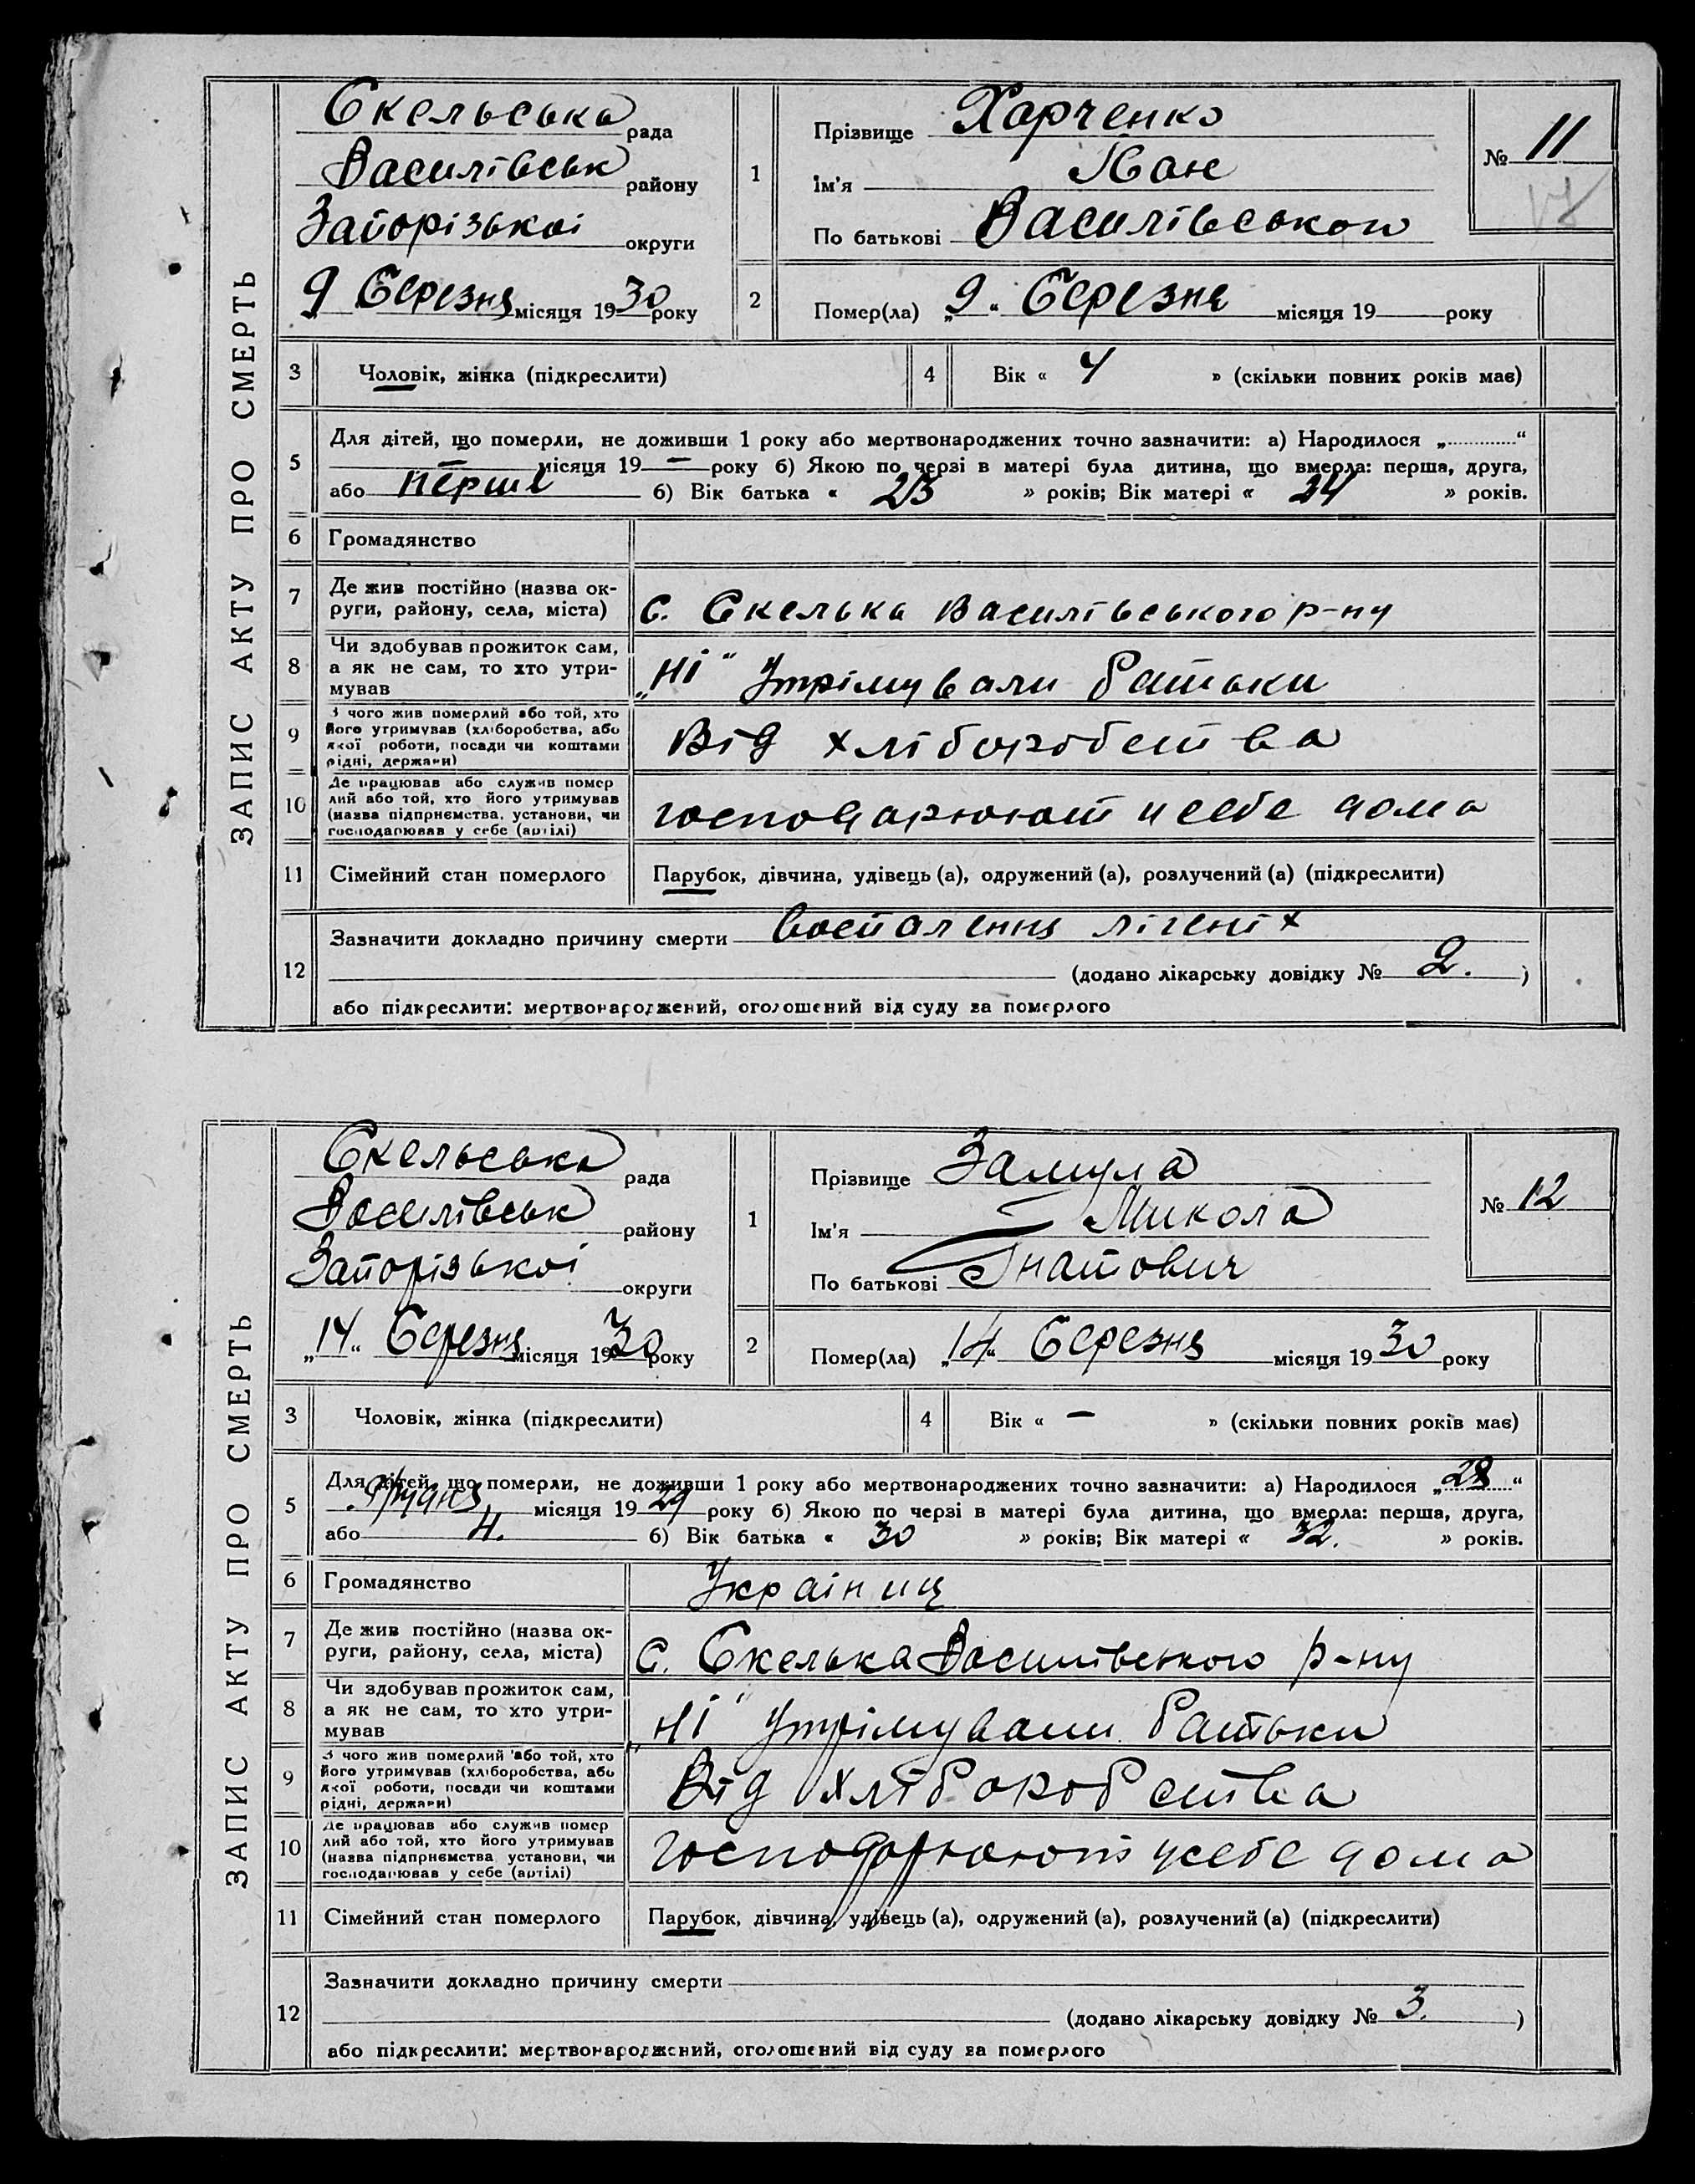 ЗАПИС АКТУ ПРО СМЕРТЬ
Скельська рада
Василівськ району
Запорізькоі округи
9 Березня місяця 1930 року
1 Прізвище Харченко
Ім'я Іван
По батькові
№ 11
2 Помер(ла) „9“ Березня місяця 19 року
3 Чоловік, жінка (підкреслити)
4 Вік « 4 » (скільки повних років має)
5 Для дітей, що померли, не доживши 1 року або мертвонароджених точно зазначити: а) Народилося „ “
— місяця 19 — року б) Якою по черзі в матері була дитина, що вмерла: перша, друга,
або б) Вік батька « 23 » років; Вік матері « 24 » років.
6 Громадянство
7 Де жив постійно (назва ок-
руги, району, села, міста) С. Скелька Василівського р-ну
8 Чи здобував прожиток сам,
а як не сам, то хто утри-
мував „Ні" Утрімували батьки
9 З чого жив померлий або той, хто
його утримував (хліборобства, або
якої роботи, посади чи коштами
рідні, держави) Від хліборобства
10 Де працював або служив помер
лий або той, хто його утримував
(назва підприємства, установи, чи
господарював у себе (артілі) господарюют у себе дома
11 Сімейний стан померлого Парубок, дівчина, удівець (а), одружений (а), розлучений (а) (підкреслити)
12 Зазначити докладно причину смерти воспалення
(додано лікарську довідку № 2. )
або підкреслити: мертвонароджений, оголошений від суду за померлого
ЗАПИС АКТУ ПРО СМЕРТЬ
Скельська рада
Василівськ району
Запорізькоі округи
„14“ Березня місяця 1930 року
1 Прізвище Замула
Ім'я Микола
По батькові Гнатович
№ 12
2 Помер(ла) „14“ Березня місяця 1930 року
3 Чоловік, жінка (підкреслити)
4 Вік « — » (скільки повних років має)
5 Для дітей, що померли, не доживши 1 року або мертвонароджених точно зазначити: а) Народилося „28“
Грудня місяця 1929 року б) Якою по черзі в матері була дитина, що вмерла: перша, друга,
або 4. б) Вік батька « 30 » років; Вік матері « 32. » років.
6 Громадянство Украінец
7 Де жив постійно (назва ок-
руги, району, села, міста) С. Скелька Василівського р-ну
8 Чи здобував прожиток сам,
а як не сам, то хто утри-
мував „Ні" Утрімували батьки
9 З чого жив померлий або той, хто
його утримував (хліборобства, або
якої роботи, посади чи коштами
рідні, держави) Від хліборобства
10 Де працював або служив помер
лий або той, хто його утримував
(назва підприємства, установи, чи
господарював у себе (артілі) господарюют у себе дома
11 Сімейний стан померлого Парубок, дівчина, удівець (а), одружений (а), розлучений (а) (підкреслити)
12 Зазначити докладно причину смерти
(додано лікарську довідку № 3. )
або підкреслити: мертвонароджений, оголошений від суду за померлого